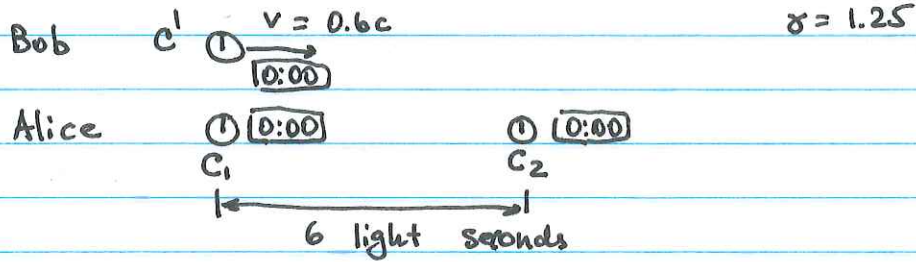 v = 0.6c
γ = 1.25
Bob C'
0:00
Alice 0:00 0:00
C₁ C₂
6 light seconds